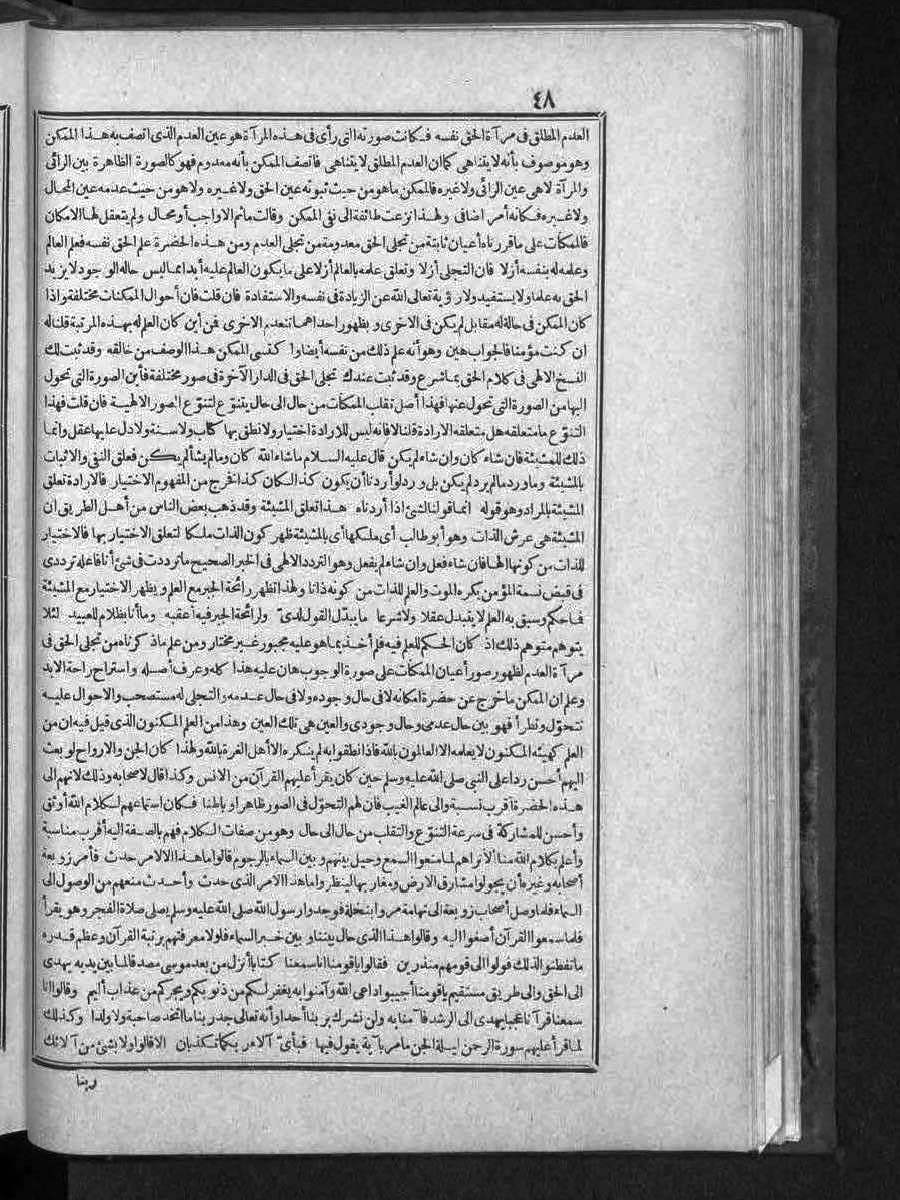 ٤٨
العدم المطلق فى مرآة الحق نفسه فكانت صورته التى رأى فى هذه المرآة هو عين العدم الذى اتصف به هذا الممكن
وهو موصوف بأنه لا يتناهى كما ان العدم المطلق لا يتناهى فاتصف الممكن بأنه معدوم فهو كالصورة الظاهرة بين الرائى
والمرآة لا هى عين الرائى ولا غيره فالممكن ما هو من حيث ثبوته عين الحق ولا غيره ولا هو من حيث عدمه عين المحال
ولا غيره فكانه أمر اضافى ولهذا نزعت طائفة الى نفى الممكن وقالت ماثم الا واجب أو محال ولم يتعقل لها الامكان
فالممكات على ماقررناه أعيان ثابتة من تجلى الحق معدومة من تجلى العدم ومن هذه الحضرة علم الحق نفسه فعلم العالم
وعلمه له بنفسه أزلا فان التجلى أزلا وتعلق علمه بالعالم أزلا على ما يكون العالم عليه أبدا مماليس حاله الوجود لا يزيد
الحق به علما ولا يستفيد ولا رؤية تعالى الله عن الزيادة فى نفسه والاستفادة فان قلت فان أحوال الممكنات مختلفة واذا
كان الممكن فى حالة له مقابل لم يكن فى الاخرى وبظهور احداهما تنعدم الاخرى فمن أين كان العلم له بهذه المرتبة قلنا له
ان كنت مؤمنا فالجواب هين وهو أنه علم ذلك من نفسه أيضا وا كتسى الممكن هذا الوصف من خالقه وقد ثبت لك
النسخ الالهى فى كلام الحق بما شرع وقد ثبت عندك تجلى الحق فى الدار الآخرة فى صور مختلفة فأين الصورة التى تحول
اليها من الصورة التى تحول عنها فهذا أصل تقلب الممكات من حال الى حال يتنوّع لتنوّع الصور الالهية فان قلت فهذا
التنوّع ما متعلقه هل متعلقه الارادة قلنا لا فانه ليس للارادة اختيار ولا نطق بها كتاب ولا سنة ولا دل عليها عقل وانما
ذلك للمشيئة فان شاء كان وان شاء لم يكن قال عليه السلام ماشاء الله كان ومالم يشألم يكن فعلق النفى والاثبات
بالمشيئة وما ورد مالم يرد لم يكن بل ورد لو أردنا أن يكون كذا لكان كذا فخرج من المفهوم الاختيار فالارادة تعلق
المشيئة بالمراد وهو قوله انما قولنا لشئ اذا أردناه هذا تعلق المشيئة وقد ذهب بعض الناس من أهل الطريق ان
المشيئة هى عرش الذات وهو أبو طالب أى ملكها أى بالمشيئة ظهر كون الذات ملكا لتعلق الاختيار بها فالاختيار
للذات من كونها الها فان شاء فعل وان شاء لم يفعل وهو التردد الالهى فى الخبر الصحيح ما ترددت فى شئ أنا فاعله ترددى
فى قبض نسمة المؤمن يكره الموت والعلم للذات من كونه ذاتا ولهذا تظهر رائحة الجبر مع العلم ويظهر الاختيار مع المشيئة
فما حكم وسبق به العلم لا يتبدل عقلا ولا شرعا ما يبدّل القول لدىّ ولرائحة الجبر فيه أعقبه وما أنا بظلام للعبيد لئلا
يتوهم متوهم ذلك اذ كان الحكم للعلم فيه فلم أخذ بما هو عليه مجبور غير مختار ومن علم ماذ كرناه من تجلى الحق فى
مرآة العدم لظهور صور أعيان الممكات على صورة الوجوب هان عليه هذا كله وعرف أصله واستراح راحة الابد
وعلم ان الممكن ما خرج عن حضرة امكانه لا فى حال وجوده ولا فى حال عدمه والتجلى له مستصحب والاحوال عليه
تتحوّل وتطرأ فهو بين حال عدمى وحال وجودى والعين هى تلك العين وهذا من العلم المكنون الذى قيل فيه ان من
العلم كهيئة المكنون لا يعلمه الا العالمون بالله فاذا نطقوا به لم ينكره الا أهل الغرة بالله ولهذا كان الجن والارواح لو بعث
اليهم أحسن ردا على النبى صلى الله عليه وسلم حين كان يقرأ عليهم القرآن من الانس وكذا قال لاصحابه وذلك لانهم الى
هذه الحضرة أقرب نسبة والى عالم الغيب فان لهم التحوّل فى الصور ظاهرا وباطنا فكان استماعهم لكلام الله أوثق
وأحسن للمشاركة فى سرعة التنوّع والتقلب من حال الى حال وهو من صفات الكلام فهم بالصفة اليه أقرب مناسبة
وأعلم بكلام الله منا ألا تراهم لما منعوا السمع وحيل بينهم وبين السماء بالرجوم قالوا ما هذا الا لامر حدث فأمر زوبعة
أصحابه وغيره أن يجولوا مشارق الارض ومغاربها لينظروا ما هذا الامر الذى حدث وأحدث منعهم من الوصول الى
السماء فلما وصل أصحاب زوبعة الى تهامة مروا بنخلة فوجدوا رسول الله صلى الله عليه وسلم يصلى صلاة الفجر وهو يقرأ
فلما سمعوا القرآن أصغوا اليه وقالوا هذا الذى حال بيننا وبين خبر السماء فلولا معرفتهم برتبة القرآن وعظم قدره
ما تفطنوا لذلك فولوا الى قومهم منذرين فقالوا يا قومنا انا سمعنا كتابا أنزل من بعد موسى مصدقا لما بين يديه يهدى
الى الحق والى طريق مستقيم يا قومنا أجيبوا داعى الله وآمنوا به يغفر لكم من ذنوبكم ويجركم من عذاب أليم وقالوا انا
سمعنا قرآنا عجبا يهدى الى الرشد فآمنا به ولن نشرك بربنا أحدا وأنه تعالى جد ربنا ما اتخذ صاحبة ولا ولدا وكذلك
لما قرأ عليهم سورة الرحمن ليلة الجن ما مر بآية يقول فيها فبأىّ آلاء ربكما تكذبان الا قالوا ولا بشئ من آلائك
ربنا